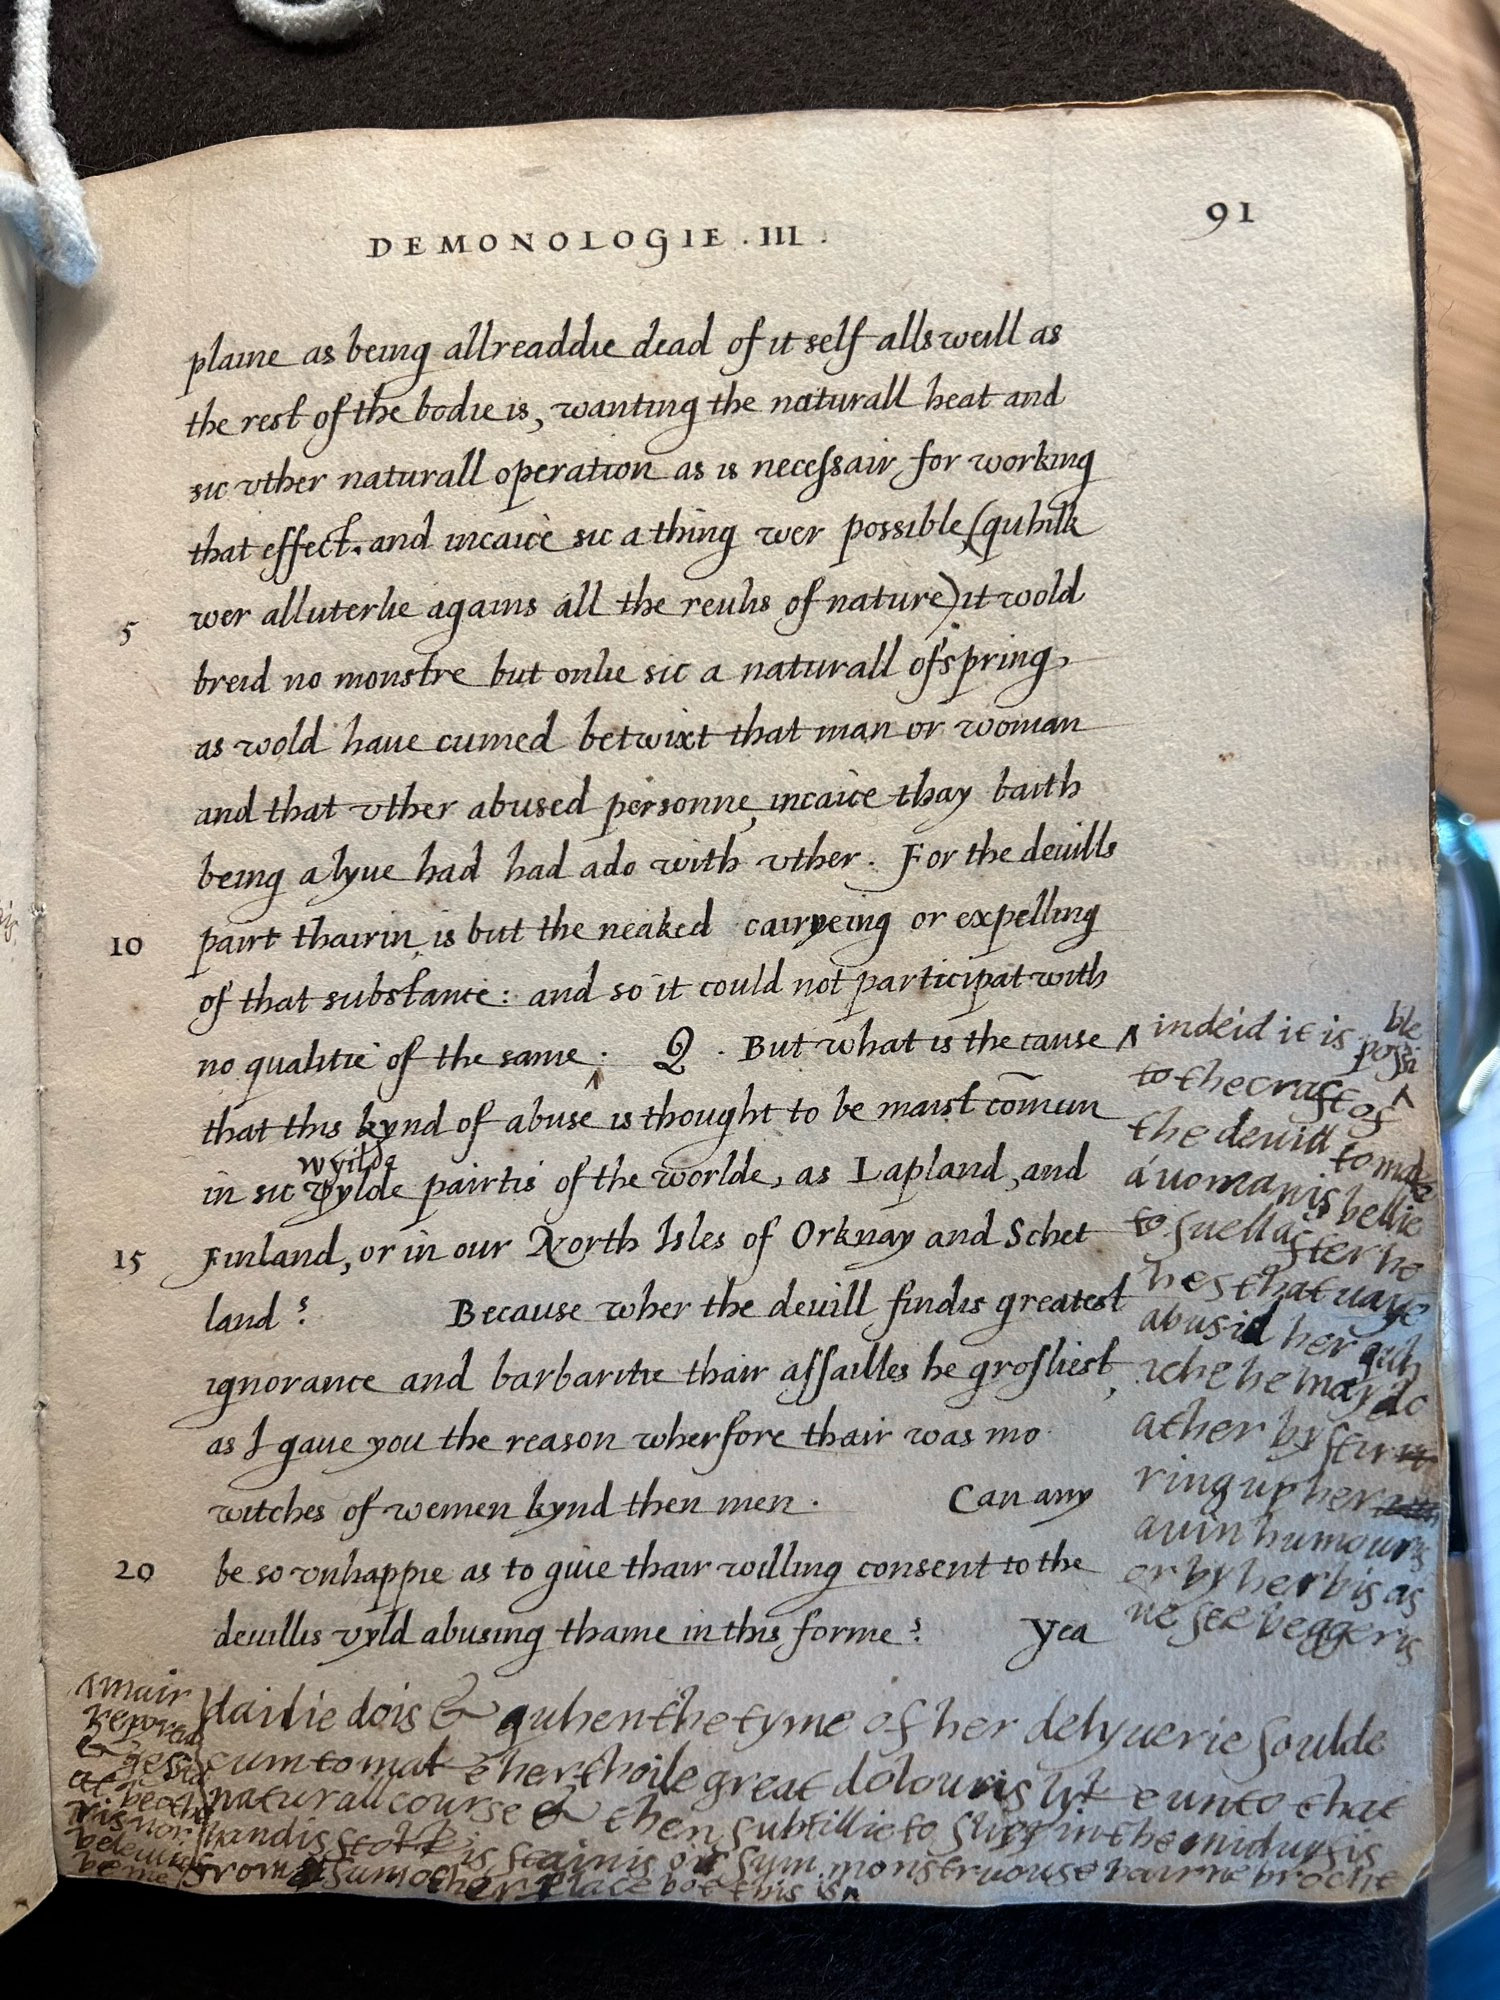 DEMONOLOGIE . III .
91
plaine as being allreaddie dead of it self alls weill as
the rest of the bodie is, wanting the naturall heat and
sic vther naturall operation as is necessair for working
that effect. and incaice sic a thing wer possible (quhilk
5 wer alluterlie agains all the reulis of nature) it wold
breid no monstre but onlie sic a naturall ofspring,
as wold haue cumed betwixt that man or woman
and that vther abused personne, incaice thay baith
being alyue had had ado with vther. For the deuills
10 pairt thairin, is but the neaked cairyeing or expelling
of that substance: and so it could not participat with
no qualitie of the same. Q. But what is the cause
that this kynd of abuse is thought to be maist cōmun
wyilde
in sic vylde pairtis of the worlde, as Lapland, and
15 Finland, or in our North Isles of Orknay and Schet
land? Because wher the deuill findis greatest
ignorance and barbaritie thair assailles he grosliest,
as I gaue you the reason wherfore thair was mo
witches of wemen kynd then men. Can any
20 be so vnhappie as to giue thair willing consent to the
deuillis vyld abusing thame in this forme? Yea
^ indeid it is possible
to the craft of
the deuill to make
a uomanis bellie
to suell after he
hes that uaye
abusid her quh
iche he may do
ather by stur
ring up her
auin humouris
or by herbis as
ue see beggeris
dailie dois & quhen the tyme of her delyuerie soulde
cum to make her thoile great dolouris lyke unto that
naturall course & then subtillie to slipp in the miduyfis
handis stokkis stainis or sum monstruouse bairne brocht
from sum other place bot this is
^ mair
reported
& gessid
at be othe
ris nor
beleuid
be me